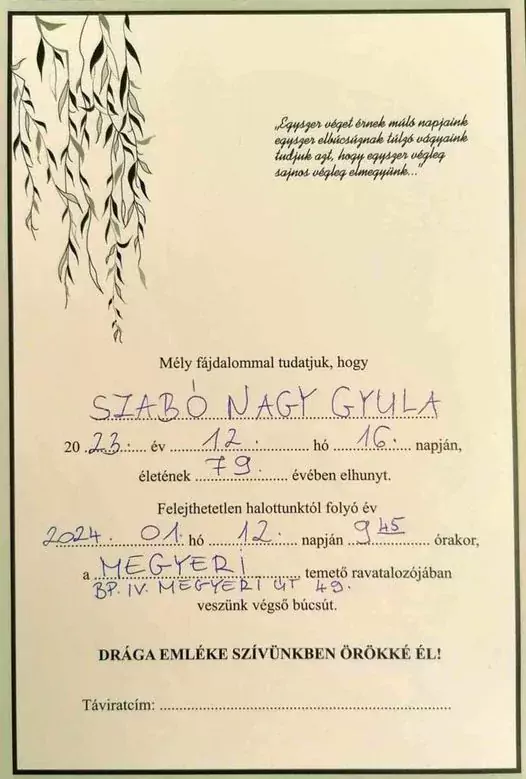 „Egyszer véget érnek múló napjaink
egyszer elbúcsúznak túlzó vágyaink
tudjuk azt, hogy egyszer végleg
sajnos végleg elmegyünk..."
Mély fájdalommal tudatjuk, hogy
SZABÓ NAGY GYULA
20 23. év 12. hó 16. napján,
életének 79. évében elhunyt.
Felejthetetlen halottunktól folyó év
2024. 01. hó 12. napján 9 45 órakor,
a MEGYERI temető ravatalozójában
BP. IV. MEGYERI ÚT 49.
veszünk végső búcsút.
DRÁGA EMLÉKE SZÍVÜNKBEN ÖRÖKKÉ ÉL!
Táviratcím: